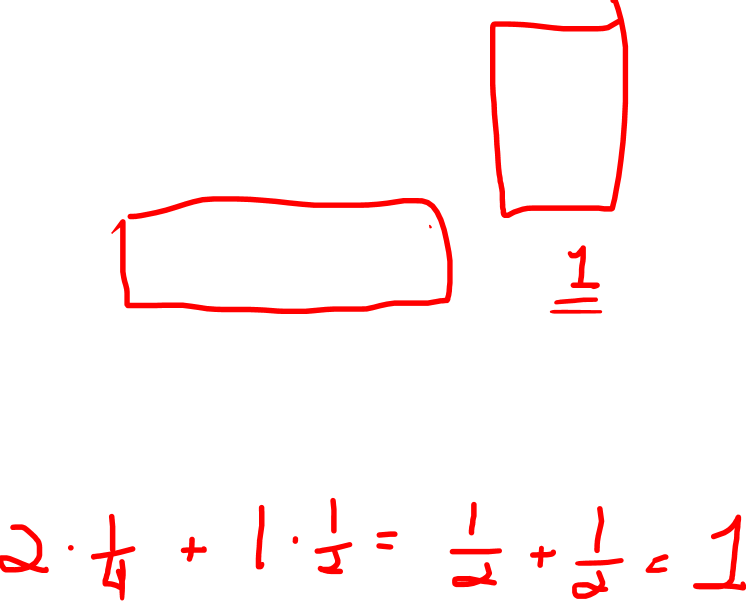 1
2 · 1/4 + 1 · 1/2 = 1/2 + 1/2 = 1